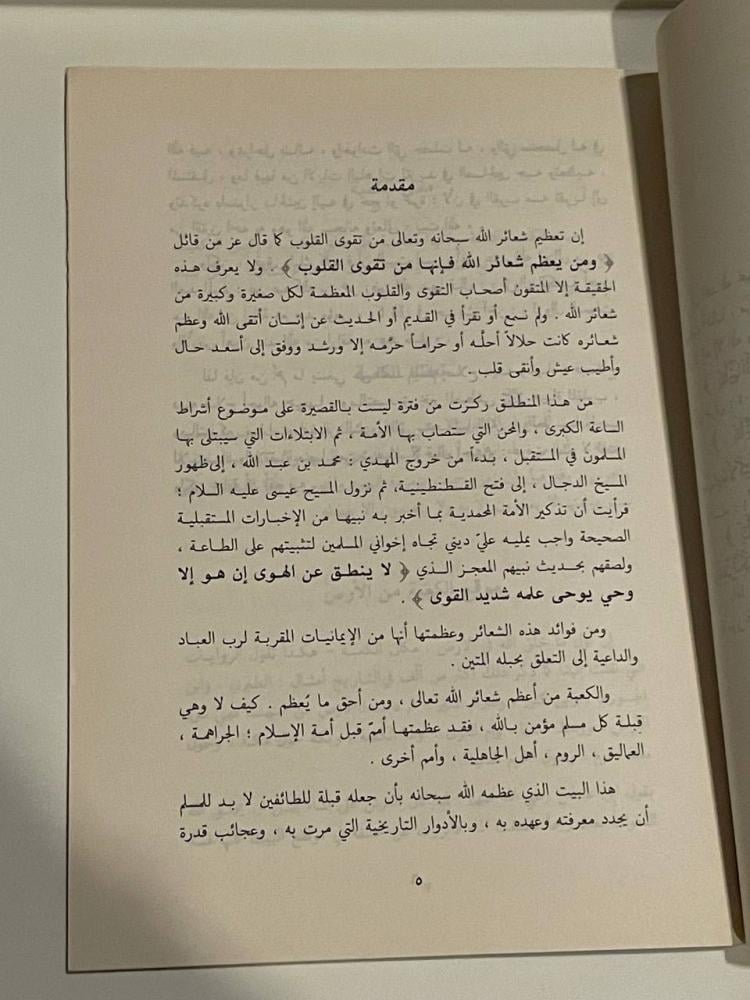 مقدمة
إن تعظيم شعائر الله سبحانه وتعالى من تقوى القلوب كما قال عز من قائل
﴿ ومن يعظم شعائر الله فإنها من تقوى القلوب ﴾ . ولا يعرف هذه
الحقيقة إلا المتقون أصحاب التقوى والقلوب المعظمة لكل صغيرة وكبيرة من
شعائر الله . ولم نسمع أو نقرأ في القديم أو الحديث عن إنسان أتقى الله وعظم
شعائره كانت حلالاً أحلّه أو حراماً حرّمه إلا ورشد ووفق إلى أسعد حال
وأطيب عيش وأنقى قلب .
من هذا المنطلق ركزت من فترة ليست بالقصيرة على موضوع أشراط
الساعة الكبرى ، والمحن التي ستصاب بها الأمة ، ثم الابتلاءات التي سيبتلى بها
المسلمون في المستقبل ، بدءاً من خروج المهدي : محمد بن عبد الله ، إلى ظهور
المسيخ الدجال ، إلى فتح القسطنطينية، ثم نزول المسيح عيسى عليه السلام ؛
فرأيت أن تذكير الأمة المحمدية بما أخبر به نبيها من الإخبارات المستقبلية
الصحيحة واجب يمليه عليّ ديني تجاه إخواني المسلمين لتثبيتهم على الطاعة ،
ولصقهم بحديث نبيهم المعجز الذي ﴿ لا ينطق عن الهوى إن هو إلا
وحي يوحى علمه شديد القوى ﴾ .
ومن فوائد هذه الشعائر وعظمتها أنها من الإيمانيات المقربة لرب العباد
والداعية إلى التعلق بحبله المتين .
والكعبة من أعظم شعائر الله تعالى ، ومن أحق ما يُعظم . كيف لا وهي
قبلة كل مسلم مؤمن بالله ، فقد عظمتها أممٌ قبل أمة الإسلام ؛ الجراهمة ،
العماليق ، الروم ، أهل الجاهلية ، وأمم أخرى .
هذا البيت الذي عظمه الله سبحانه بأن جعله قبلة للطائفين لا بد للمسلم
أن يجدد معرفته وعهده به ، وبالأدوار التاريخية التي مرت به ، وعجائب قدرة
٥